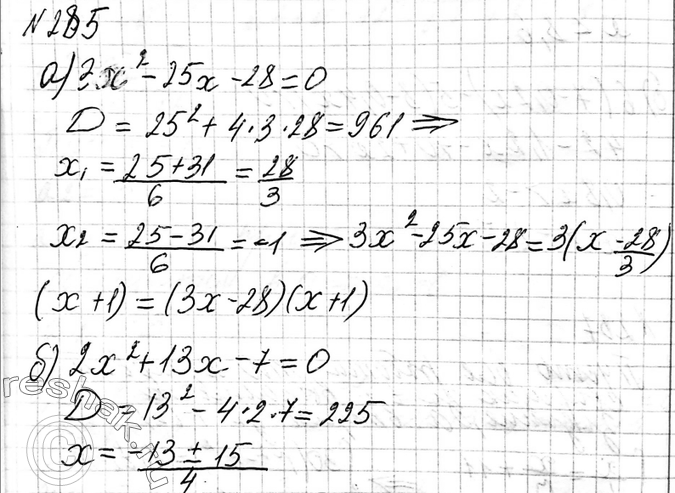 N 285
а) 3x² - 25x - 28 = 0
D = 25² + 4·3·28 = 961 ⇒
x₁ = (25+31)/6 = 28/3
x₂ = (25-31)/6 = -1 ⇒ 3x² - 25x - 28 = 3(x - 28/3)
(x + 1) = (3x - 28)(x + 1)
б) 2x² + 13x - 7 = 0
D = 13² - 4·2·7 = 225
x = (-13 ± 15)/4
reshak.ru